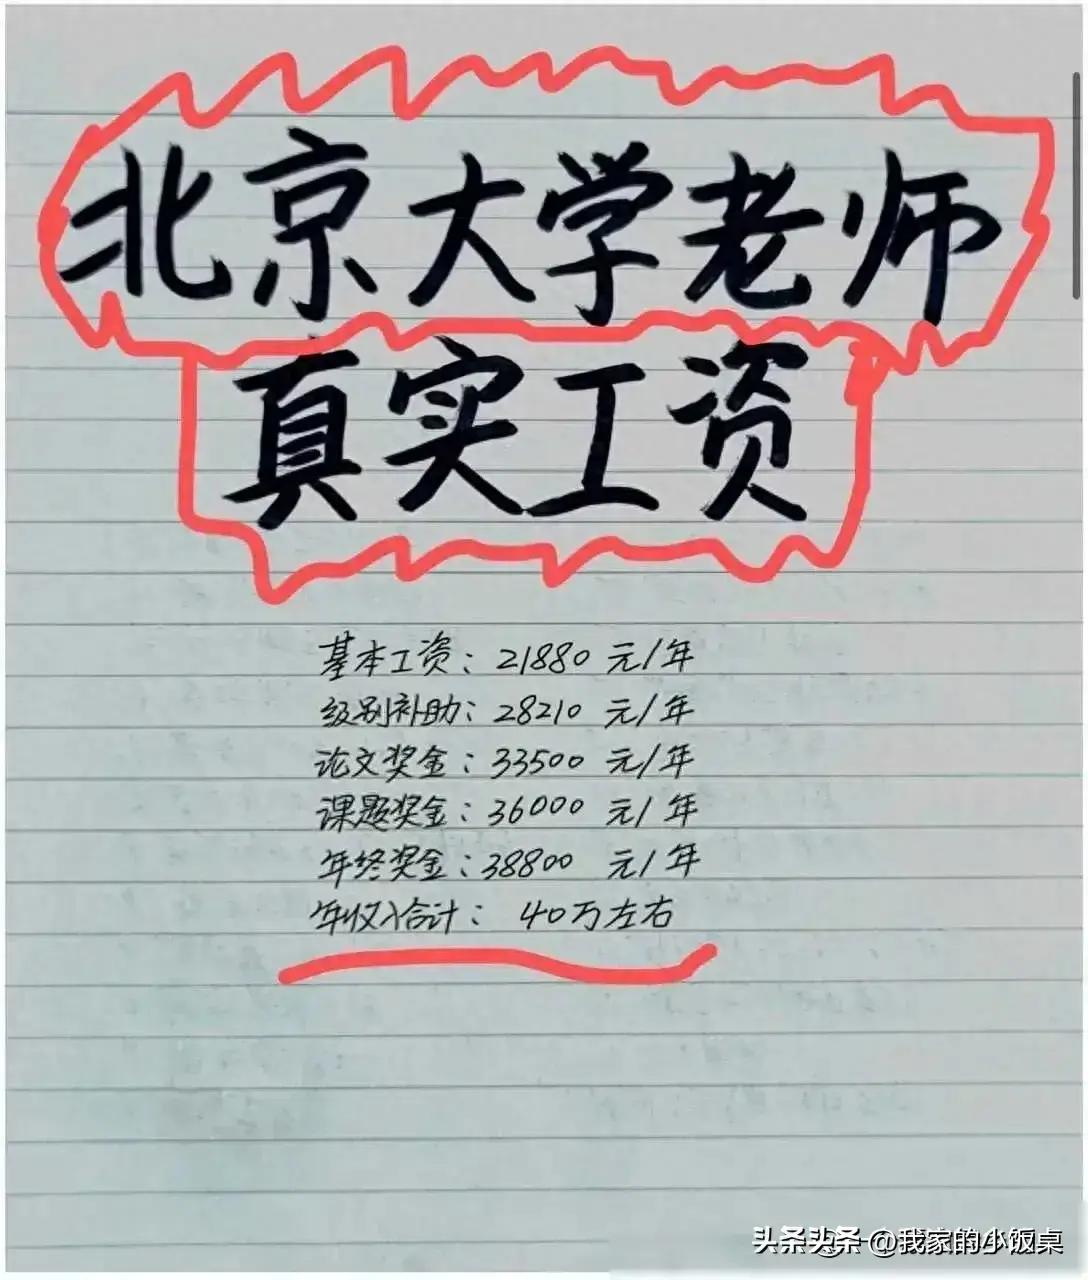 北京大学老师
真实工资
基本工资：21880 元/年
级别补助：28210 元/年
论文奖金：33500 元/年
课题奖金：36000 元/年
年终奖金：38800 元/年
年收入合计： 40万左右
头条 @我家的小饭桌